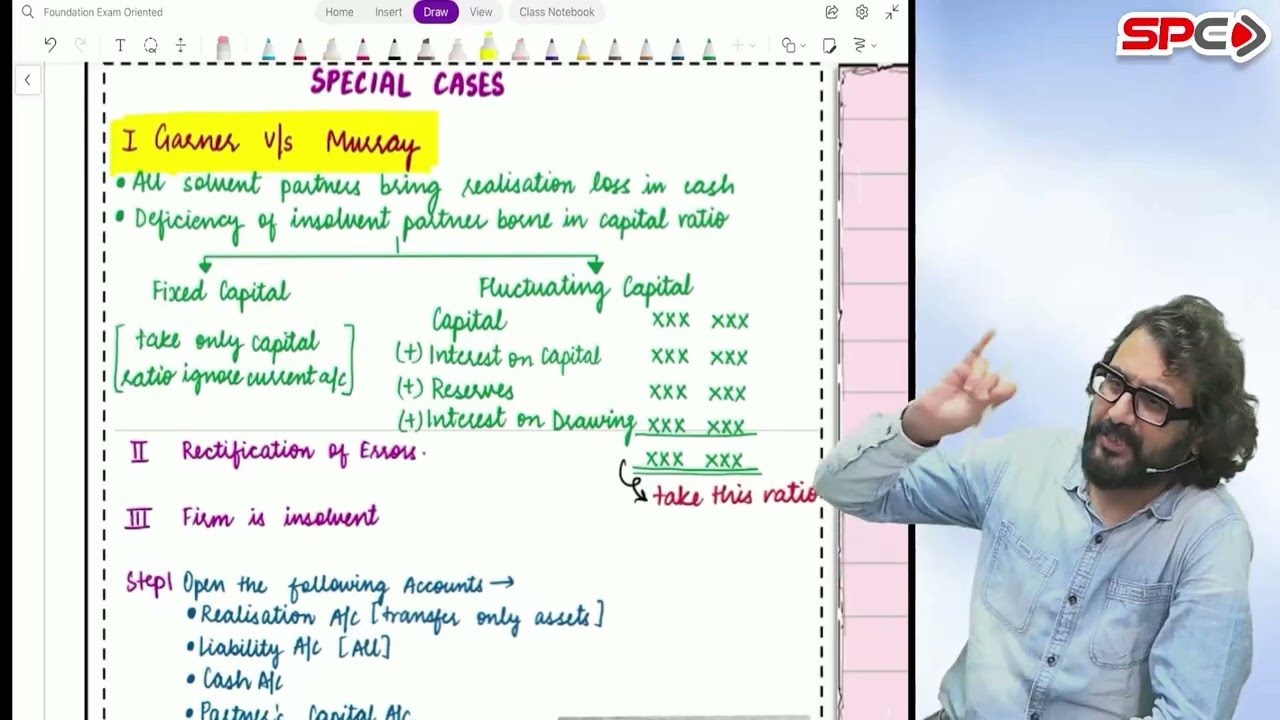 Foundation Exam Oriented
Home Insert Draw View Class Notebook
SPECIAL CASES
I Garner v/s Murray
• All solvent partners bring realisation loss in cash
• Deficiency of insolvent partner borne in capital ratio
Fixed Capital
[take only capital
ratio ignore current a/c]
Fluctuating Capital
Capital xxx xxx
(+) Interest on Capital xxx xxx
(+) Reserves xxx xxx
(+) Interest on Drawing xxx xxx
xxx xxx
take this ratio
II Rectification of Errors.
III Firm is insolvent
Step1 Open the following Accounts →
• Realisation A/c [transfer only assets]
• Liability A/c [All]
• Cash A/c
• Partner's Capital A/c
SPC